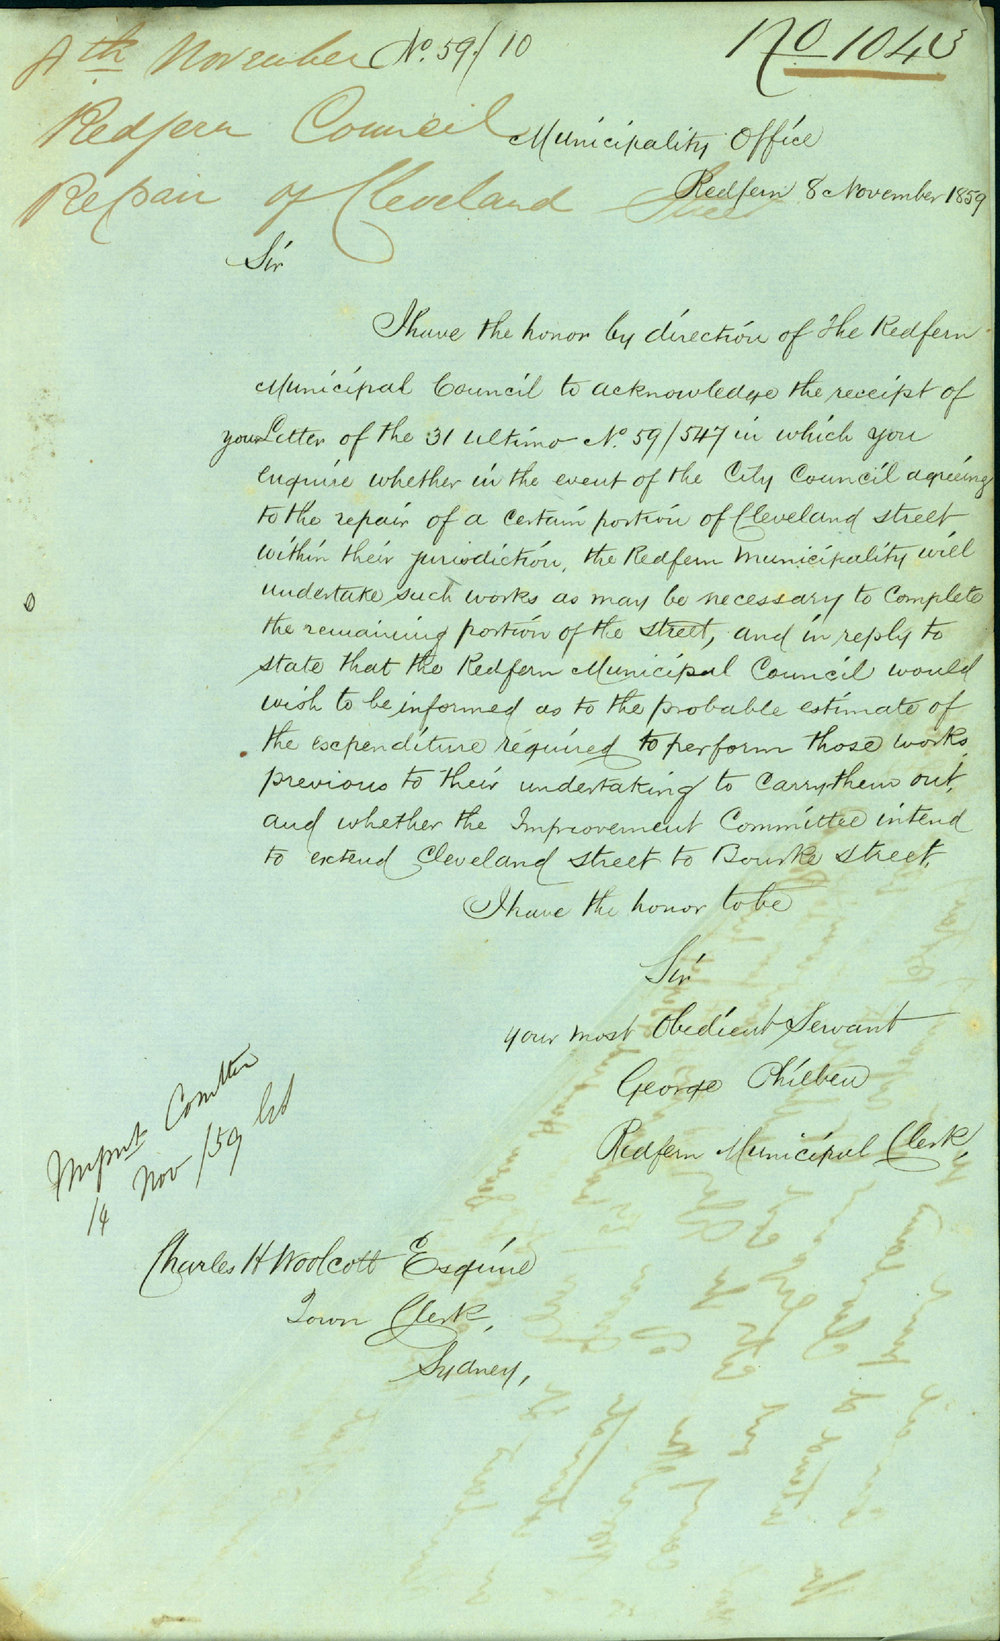 No. 59/10
No 1043
th November
Redfern Council
Repair of Cleveland Street
Municipality Office
Redfern 8 November 1859
Sir
I have the honor by direction of the Redfern
Municipal Council to acknowledge the receipt of
your Letter of the 31 ultimo No. 59/547 in which you
enquire whether in the event of the City Council agreeing
to the repair of a certain portion of Cleveland street
within their jurisdiction, the Redfern Municipality will
undertake such works as may be necessary to complete
the remaining portion of the street, and in reply to
state that the Redfern Municipal Council would
wish to be informed as to the probable estimate of
the expenditure required to perform those works
previous to their undertaking to carry them out,
and whether the Improvement Committee intend
to extend Cleveland street to Bourke street.
I have the honor to be
Sir
your most Obedient Servant
George
Redfern Municipal Clerk,
Impmt Comttee
14 Nov /59
Charles H Woolcott Esquire
Town Clerk,
Sydney,